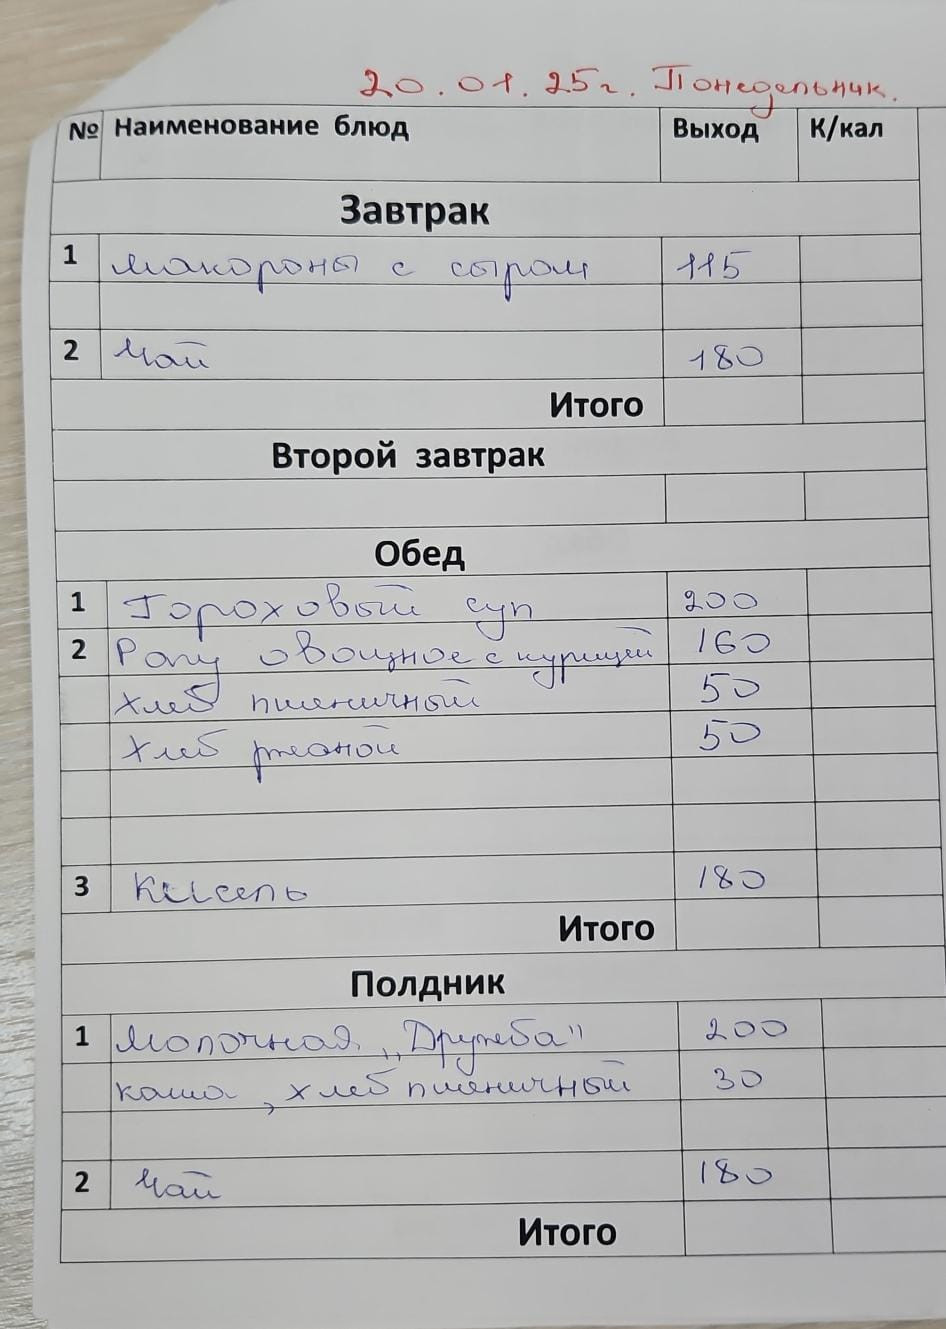 20.01.25г. Понедельник.
№ Наименование блюд Выход К/кал
Завтрак
1 Макороны с сыром 115
2 Чай 180
Итого
Второй завтрак
Обед
1 Гороховый суп 200
2 Рагу овощное с курицей 160
Хлеб пшеничный 50
Хлеб ржаной 50
3 Кисель 180
Итого
Полдник
1 Молочная „Дружба" 200
каша, хлеб пшеничный 30
2 Чай 180
Итого